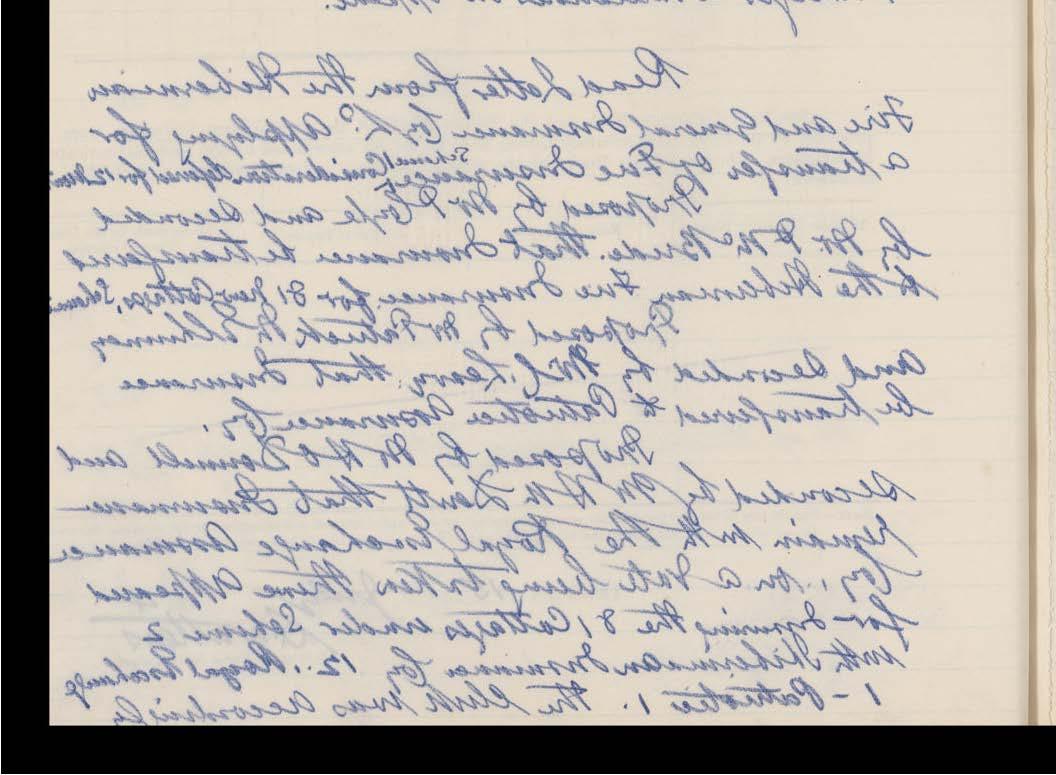 Read Letter from the Hibernian
Fire and General Insurance Co Ld. applying for
a transfer of Fire Insurance, Scheme 1 Consideration deferred for 12 Months
Proposed by Mr P Coyle and Seconded
by Mr P McBride. that Insurance be transferred
to the Hibernian, Fire Insurance for 81 New Cottages, Scheme
Proposed by Mr Patrick
and Seconded by Mr that Insurance
be transferred to Patriotic Assurance Co,
Proposed by Mr H O Donnell and
Seconded by Mr H Mc Devitt that Insurance
remain with the Royal Exchange Assurance
Coy, on a vote being taken there appeared
for Insuring the 81 Cottages under Scheme 2
with Hibernian Insurance Co 12. Royal Exchange
1 - Patriotic 1. The Clerk was accordingly